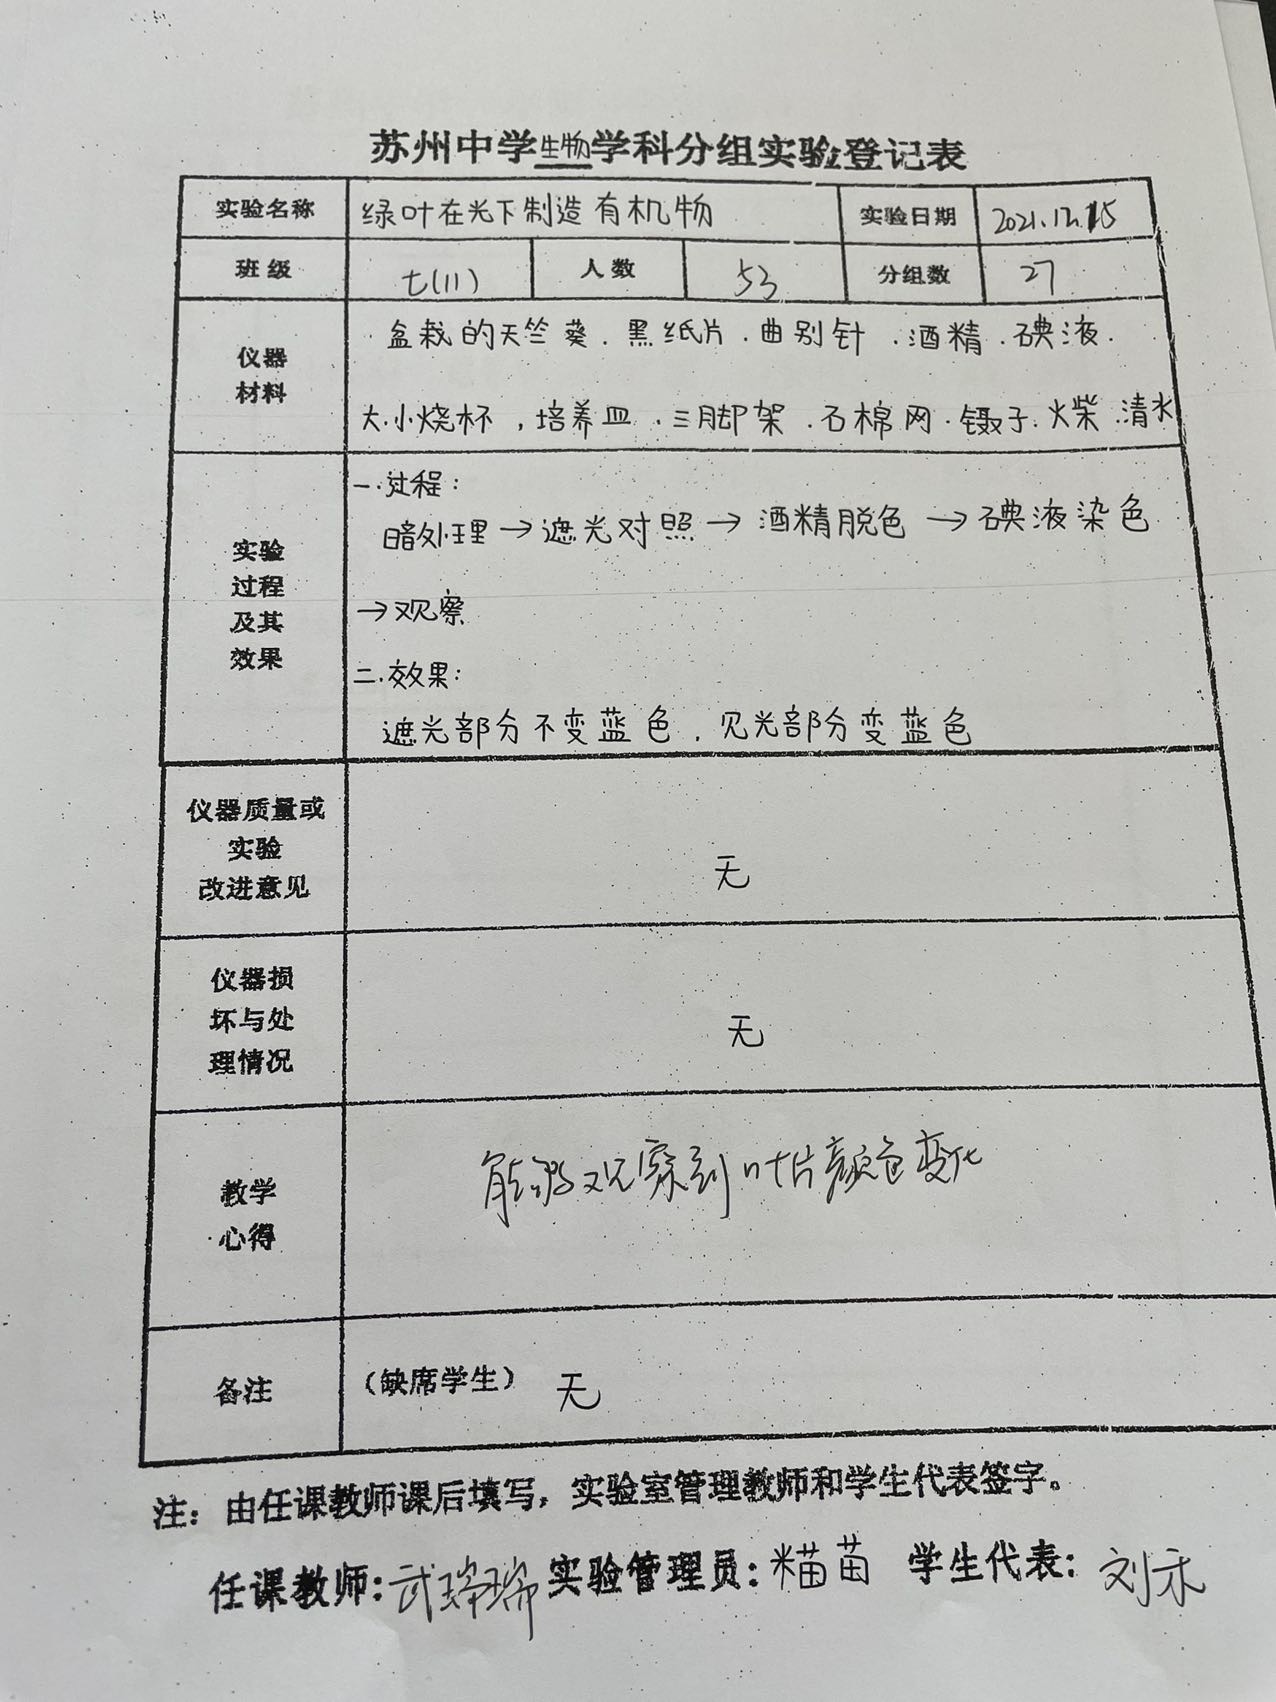 苏州中学生物学科分组实验登记表
实验名称 绿叶在光下制造有机物 实验日期 2021.12.15
班级 七(11) 人数 53 分组数 27
仪器
材料
盆栽的天竺葵.黑纸片.曲别针.酒精.碘液.
大.小烧杯,培养皿.三脚架.石棉网.镊子.火柴.清水
实验
过程
及其
效果
一.过程:
暗处理→遮光对照→酒精脱色→碘液染色
→观察
二.效果:
遮光部分不变蓝色,见光部分变蓝色
仪器质量或
实验
改进意见
无
仪器损
坏与处
理情况
无
教学
心得
能够观察到叶片颜色变化
备注 (缺席学生) 无
注:由任课教师课后填写,实验室管理教师和学生代表签字。
任课教师:武瑞瑞 实验管理员: 苗 学生代表:刘禾